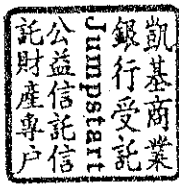 凱基商業
銀行受託
Jumpstart
公益信託信
託財產專户